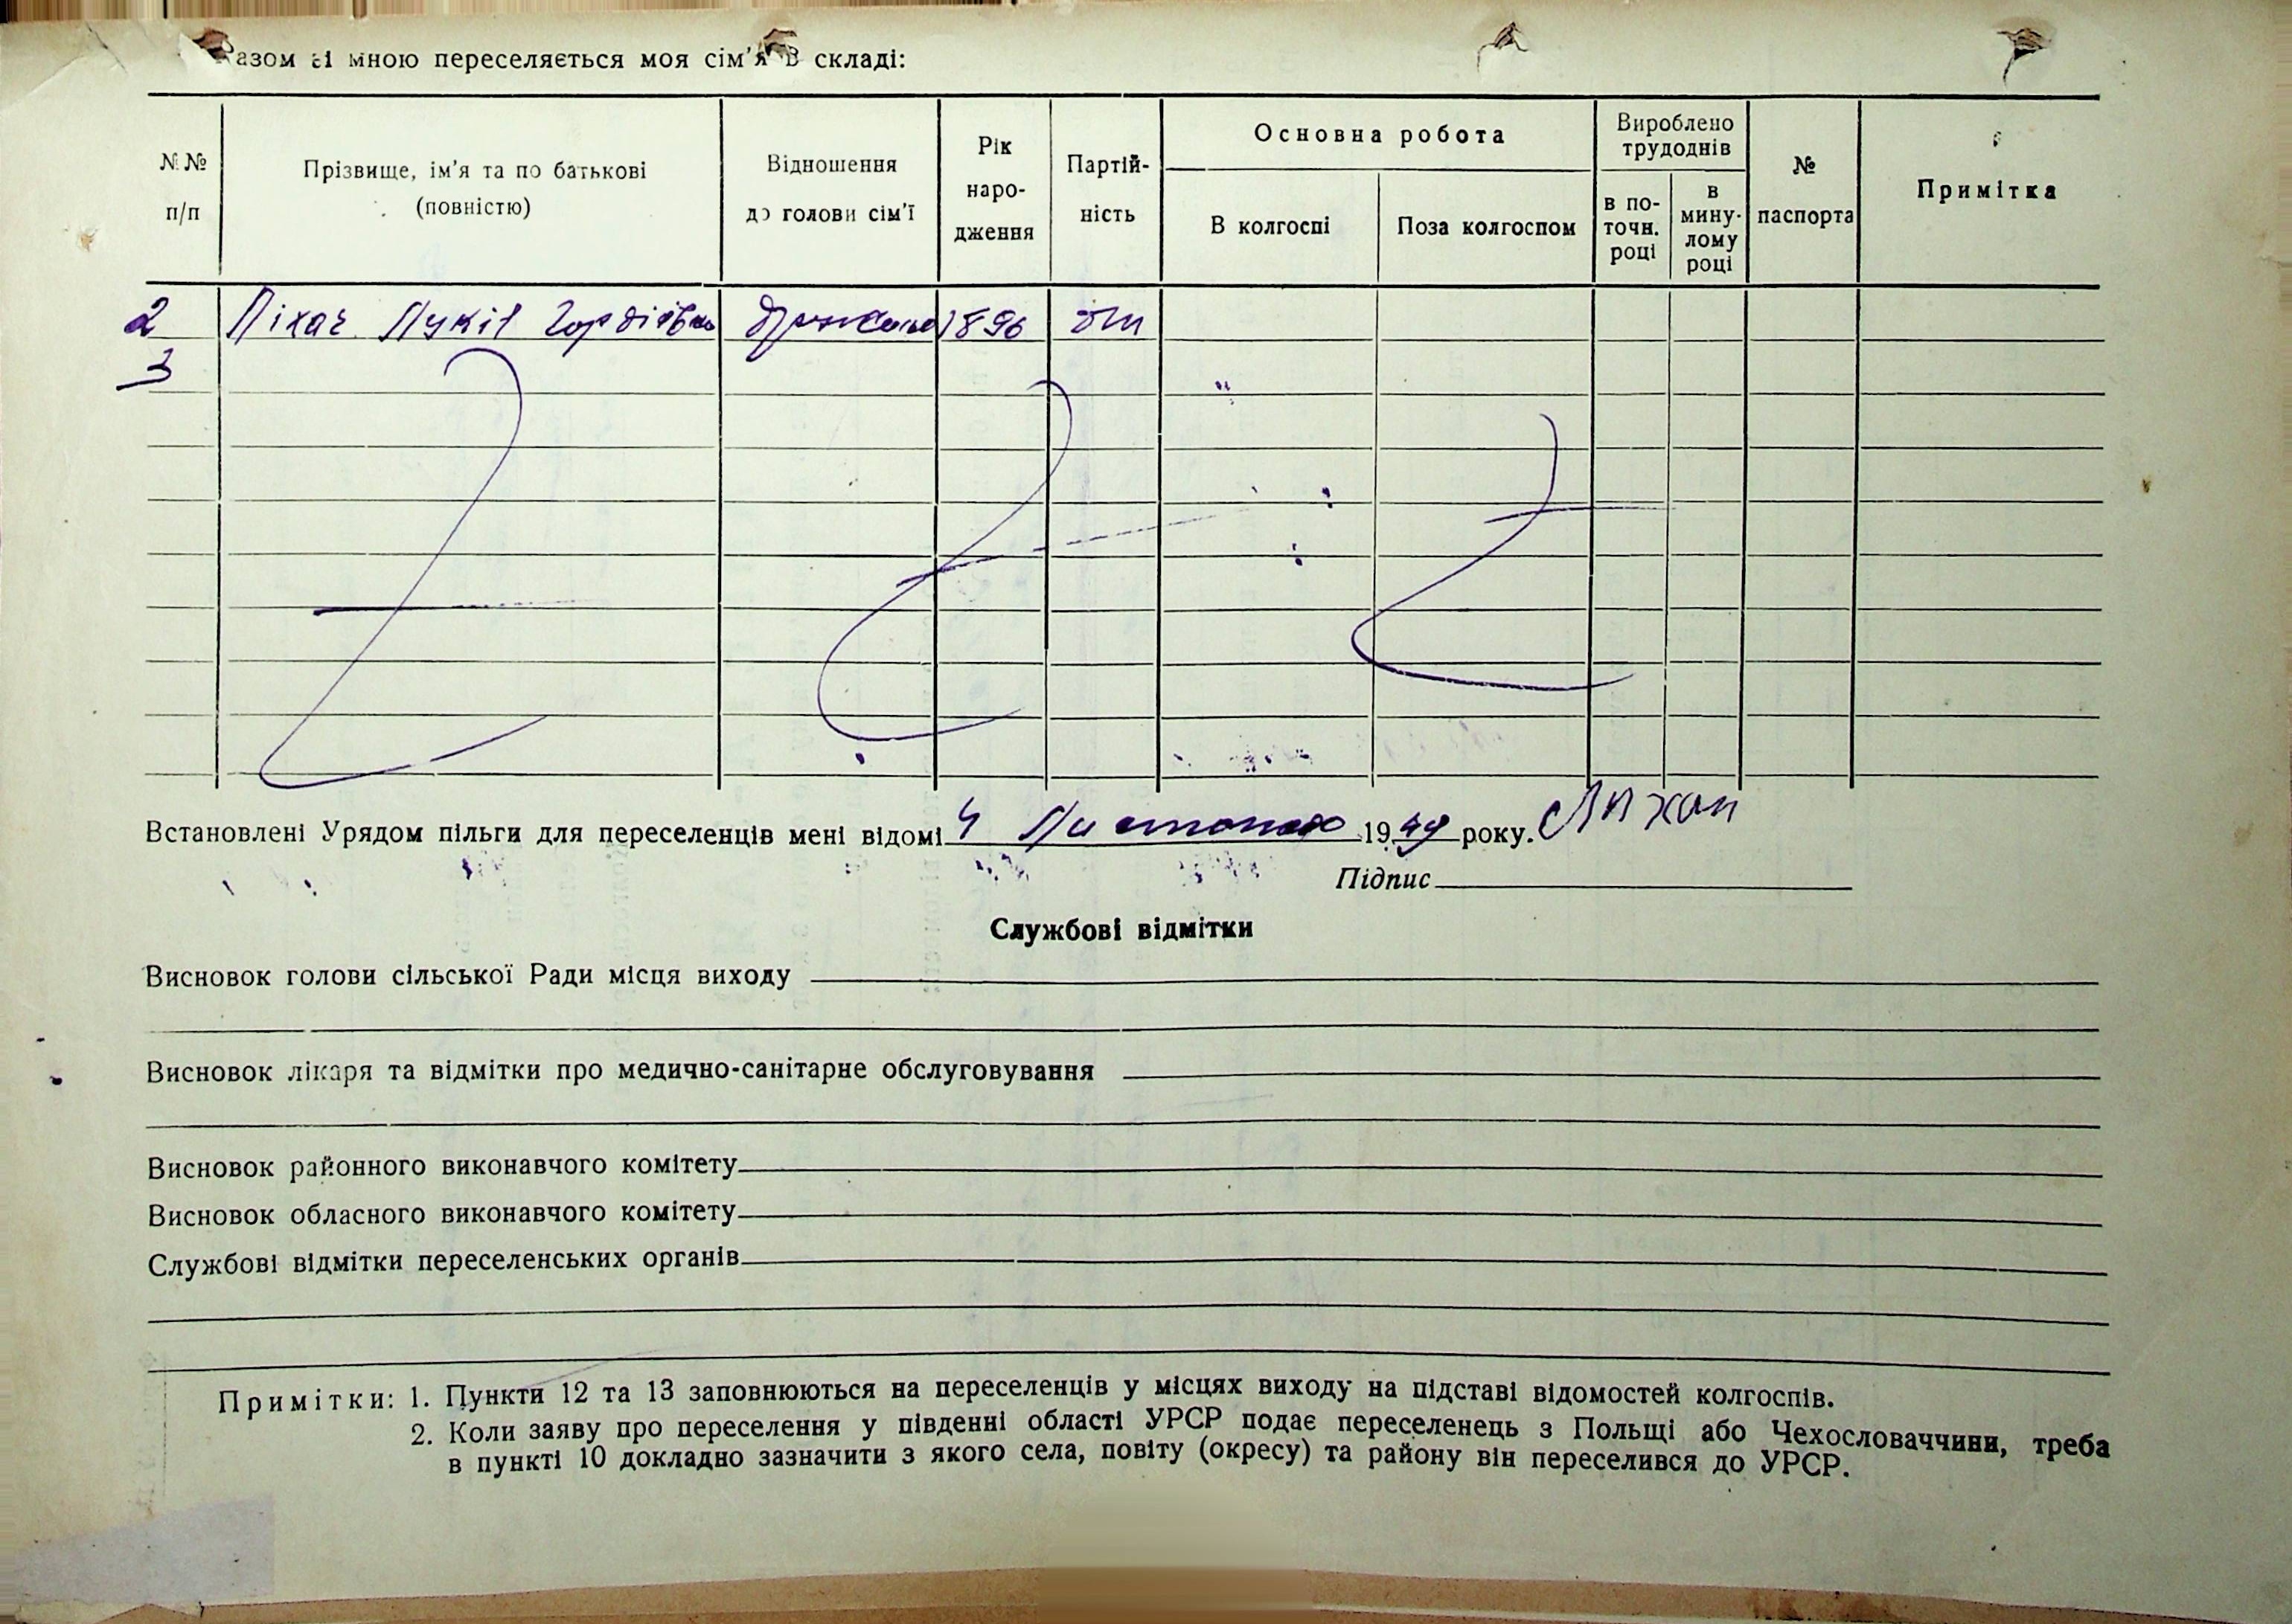 Разом зі мною переселяється моя сім'я в складі:
№№ п/п
Прізвище, ім'я та по батькові (повністю)
Відношення до голови сім'ї
Рік народження
Партій-
ність
Основна робота
В колгоспі
Поза колгоспом
Вироблено трудоднів
в по-
точн.
році
в
мину-
лому
році
№ паспорта
Примітка
2 Ліхач Гордіївна дружина 1896 б/п
3
Встановлені Урядом пільги для переселенців мені відомі 4 Листопада 1949 року.
Підпис
Службові відмітки
Висновок голови сільської Ради місця виходу
Висновок лікаря та відмітки про медично-санітарне обслуговування
Висновок районного виконавчого комітету
Висновок обласного виконавчого комітету
Службові відмітки переселенських органів
Примітки: 1. Пункти 12 та 13 заповнюються на переселенців у місцях виходу на підставі відомостей колгоспів.
2. Коли заяву про переселення у південні області УРСР подає переселенець з Польщі або Чехословаччини, треба
в пункті 10 докладно зазначити з якого села, повіту (окресу) та району він переселився до УРСР.